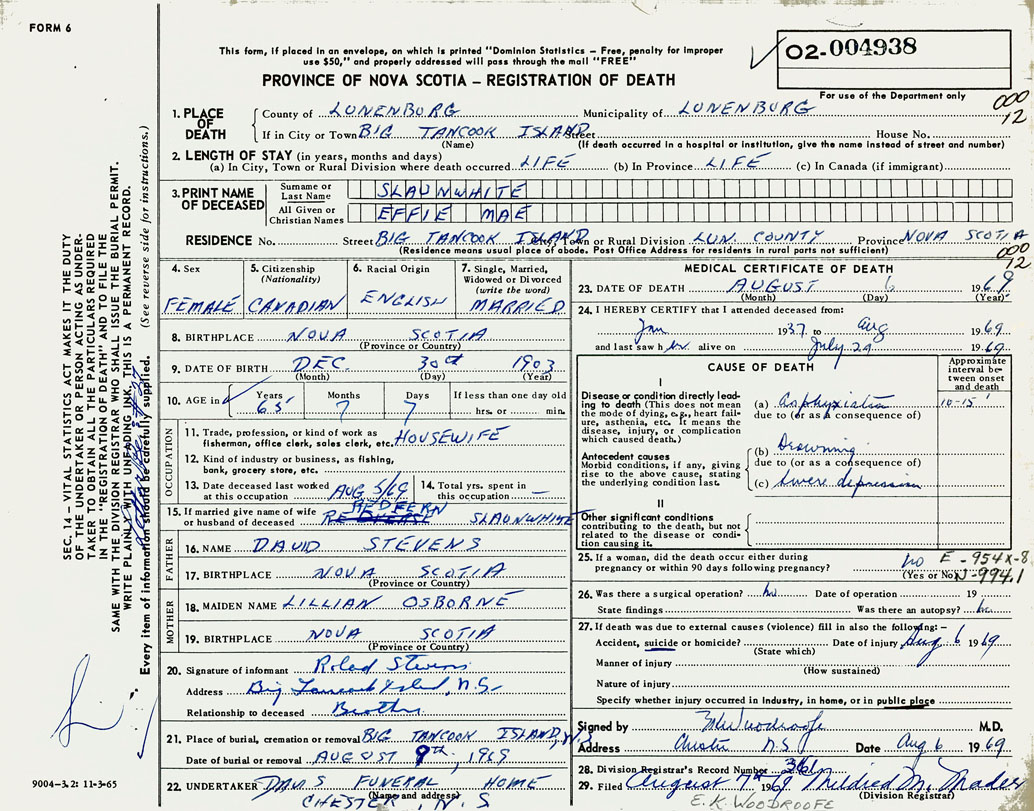 FORM 6
This form, if placed in an envelope, on which is printed "Dominion Statistics – Free, penalty for improper
use $50," and properly addressed will pass through the mail "FREE"
PROVINCE OF NOVA SCOTIA – REGISTRATION OF DEATH
02-004938
For use of the Department only
000
12
1. PLACE OF DEATH County of LUNENBURG Municipality of LUNENBURG
If in City or Town BIG TANCOOK ISLAND Street House No.
(Name) (If death occurred in a hospital or institution, give the name instead of street and number)
2. LENGTH OF STAY (in years, months and days)
(a) In City, Town or Rural Division where death occurred LIFE (b) In Province LIFE (c) In Canada (if immigrant)
3. PRINT NAME OF DECEASED
Surname or Last Name SLAUNWHITE
All Given or Christian Names EFFIE MAE
RESIDENCE No. Street BIG TANCOOK ISLAND City, Town or Rural Division LUN. COUNTY Province NOVA SCOTIA
(Residence means usual place of abode. Post Office Address for residents in rural parts not sufficient)
000
12
4. Sex FEMALE
5. Citizenship (Nationality) CANADIAN
6. Racial Origin ENGLISH
7. Single, Married, Widowed or Divorced (write the word) MARRIED
8. BIRTHPLACE NOVA SCOTIA
(Province or Country)
9. DATE OF BIRTH DEC. 30th 1903
(Month) (Day) (Year)
10. AGE in Years 65 Months 7 Days 7 If less than one day old hrs. or min.
OCCUPATION
11. Trade, profession, or kind of work as fisherman, office clerk, sales clerk, etc. HOUSEWIFE
12. Kind of industry or business, as fishing, bank, grocery store, etc.
13. Date deceased last worked at this occupation AUG 5/69
14. Total yrs. spent in this occupation —
15. If married give name of wife or husband of deceased REDFERN SLAUNWHITE
FATHER
16. NAME DAVID STEVENS
17. BIRTHPLACE NOVA SCOTIA
(Province or Country)
MOTHER
18. MAIDEN NAME LILLIAN OSBORNE
19. BIRTHPLACE NOVA SCOTIA
(Province or Country)
20. Signature of informant Roland Stevens
Address Big Tancook Island, N.S.
Relationship to deceased Brother
21. Place of burial, cremation or removal BIG TANCOOK ISLAND, N.S
Date of burial or removal AUGUST 9th, 1969
22. UNDERTAKER DAVIS FUNERAL HOME
(Name and address)
CHESTER, N.S
MEDICAL CERTIFICATE OF DEATH
23. DATE OF DEATH AUGUST 6 1969
(Month) (Day) (Year)
24. I HEREBY CERTIFY that I attended deceased from:
Jan 1937 to Aug 1969
and last saw her alive on July 29 1969
CAUSE OF DEATH
Approximate interval between onset and death
I
Disease or condition directly leading to death (This does not mean the mode of dying, e.g., heart failure, asthenia, etc. It means the disease, injury, or complication which caused death.)
(a) Asphyxiation 10-15 '
due to (or as a consequence of)
Antecedent causes
Morbid conditions, if any, giving rise to the above cause, stating the underlying condition last.
(b) Drowning
due to (or as a consequence of)
(c) Severe depression
II
Other significant conditions contributing to the death, but not related to the disease or condition causing it.
25. If a woman, did the death occur either during pregnancy or within 90 days following pregnancy? no
(Yes or No)
E-954X-8
N-994.1
26. Was there a surgical operation? no Date of operation 19
State findings Was there an autopsy? no
27. If death was due to external causes (violence) fill in also the following:–
Accident, suicide or homicide? Date of injury Aug 6 1969
(State which)
Manner of injury
(How sustained)
Nature of injury
Specify whether injury occurred in Industry, in home, or in public place
Signed by Woodroofe M.D.
Address Chester N.S Date Aug 6 1969
28. Division Registrar's Record Number
29. Filed August 7th 1969 Mildred M. Mader
(Division Registrar)
E.K. WOODROOFE
SEC. 14 – VITAL STATISTICS ACT MAKES IT THE DUTY
OF THE UNDERTAKER OR PERSON ACTING AS UNDER-
TAKER TO OBTAIN ALL THE PARTICULARS REQUIRED
IN THE "REGISTRATION OF DEATH" AND TO FILE THE
SAME WITH THE DIVISION REGISTRAR WHO SHALL ISSUE THE BURIAL PERMIT.
WRITE PLAINLY WITH UNFADING INK. THIS IS A PERMANENT RECORD.
Every item of information should be carefully supplied. (See reverse side for instructions.)
9004–3.2: 11-3-65